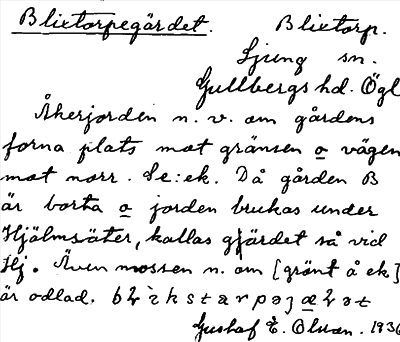 Blixtorpegärdet. Blixtorp.
Ljung sn.
Gullbergs hd. Ögl
Åkerjorden n. v. om gårdens
forna plats mot gränsen o vägen
mot norr. Se: ek. Då gården B
är borta o jorden brukas under
Hjälmsäter, kallas gärdet så vid
Hj. Även mossen n. om [gränt å ek]
är odlad.
Gustaf E. Olsson. 1936